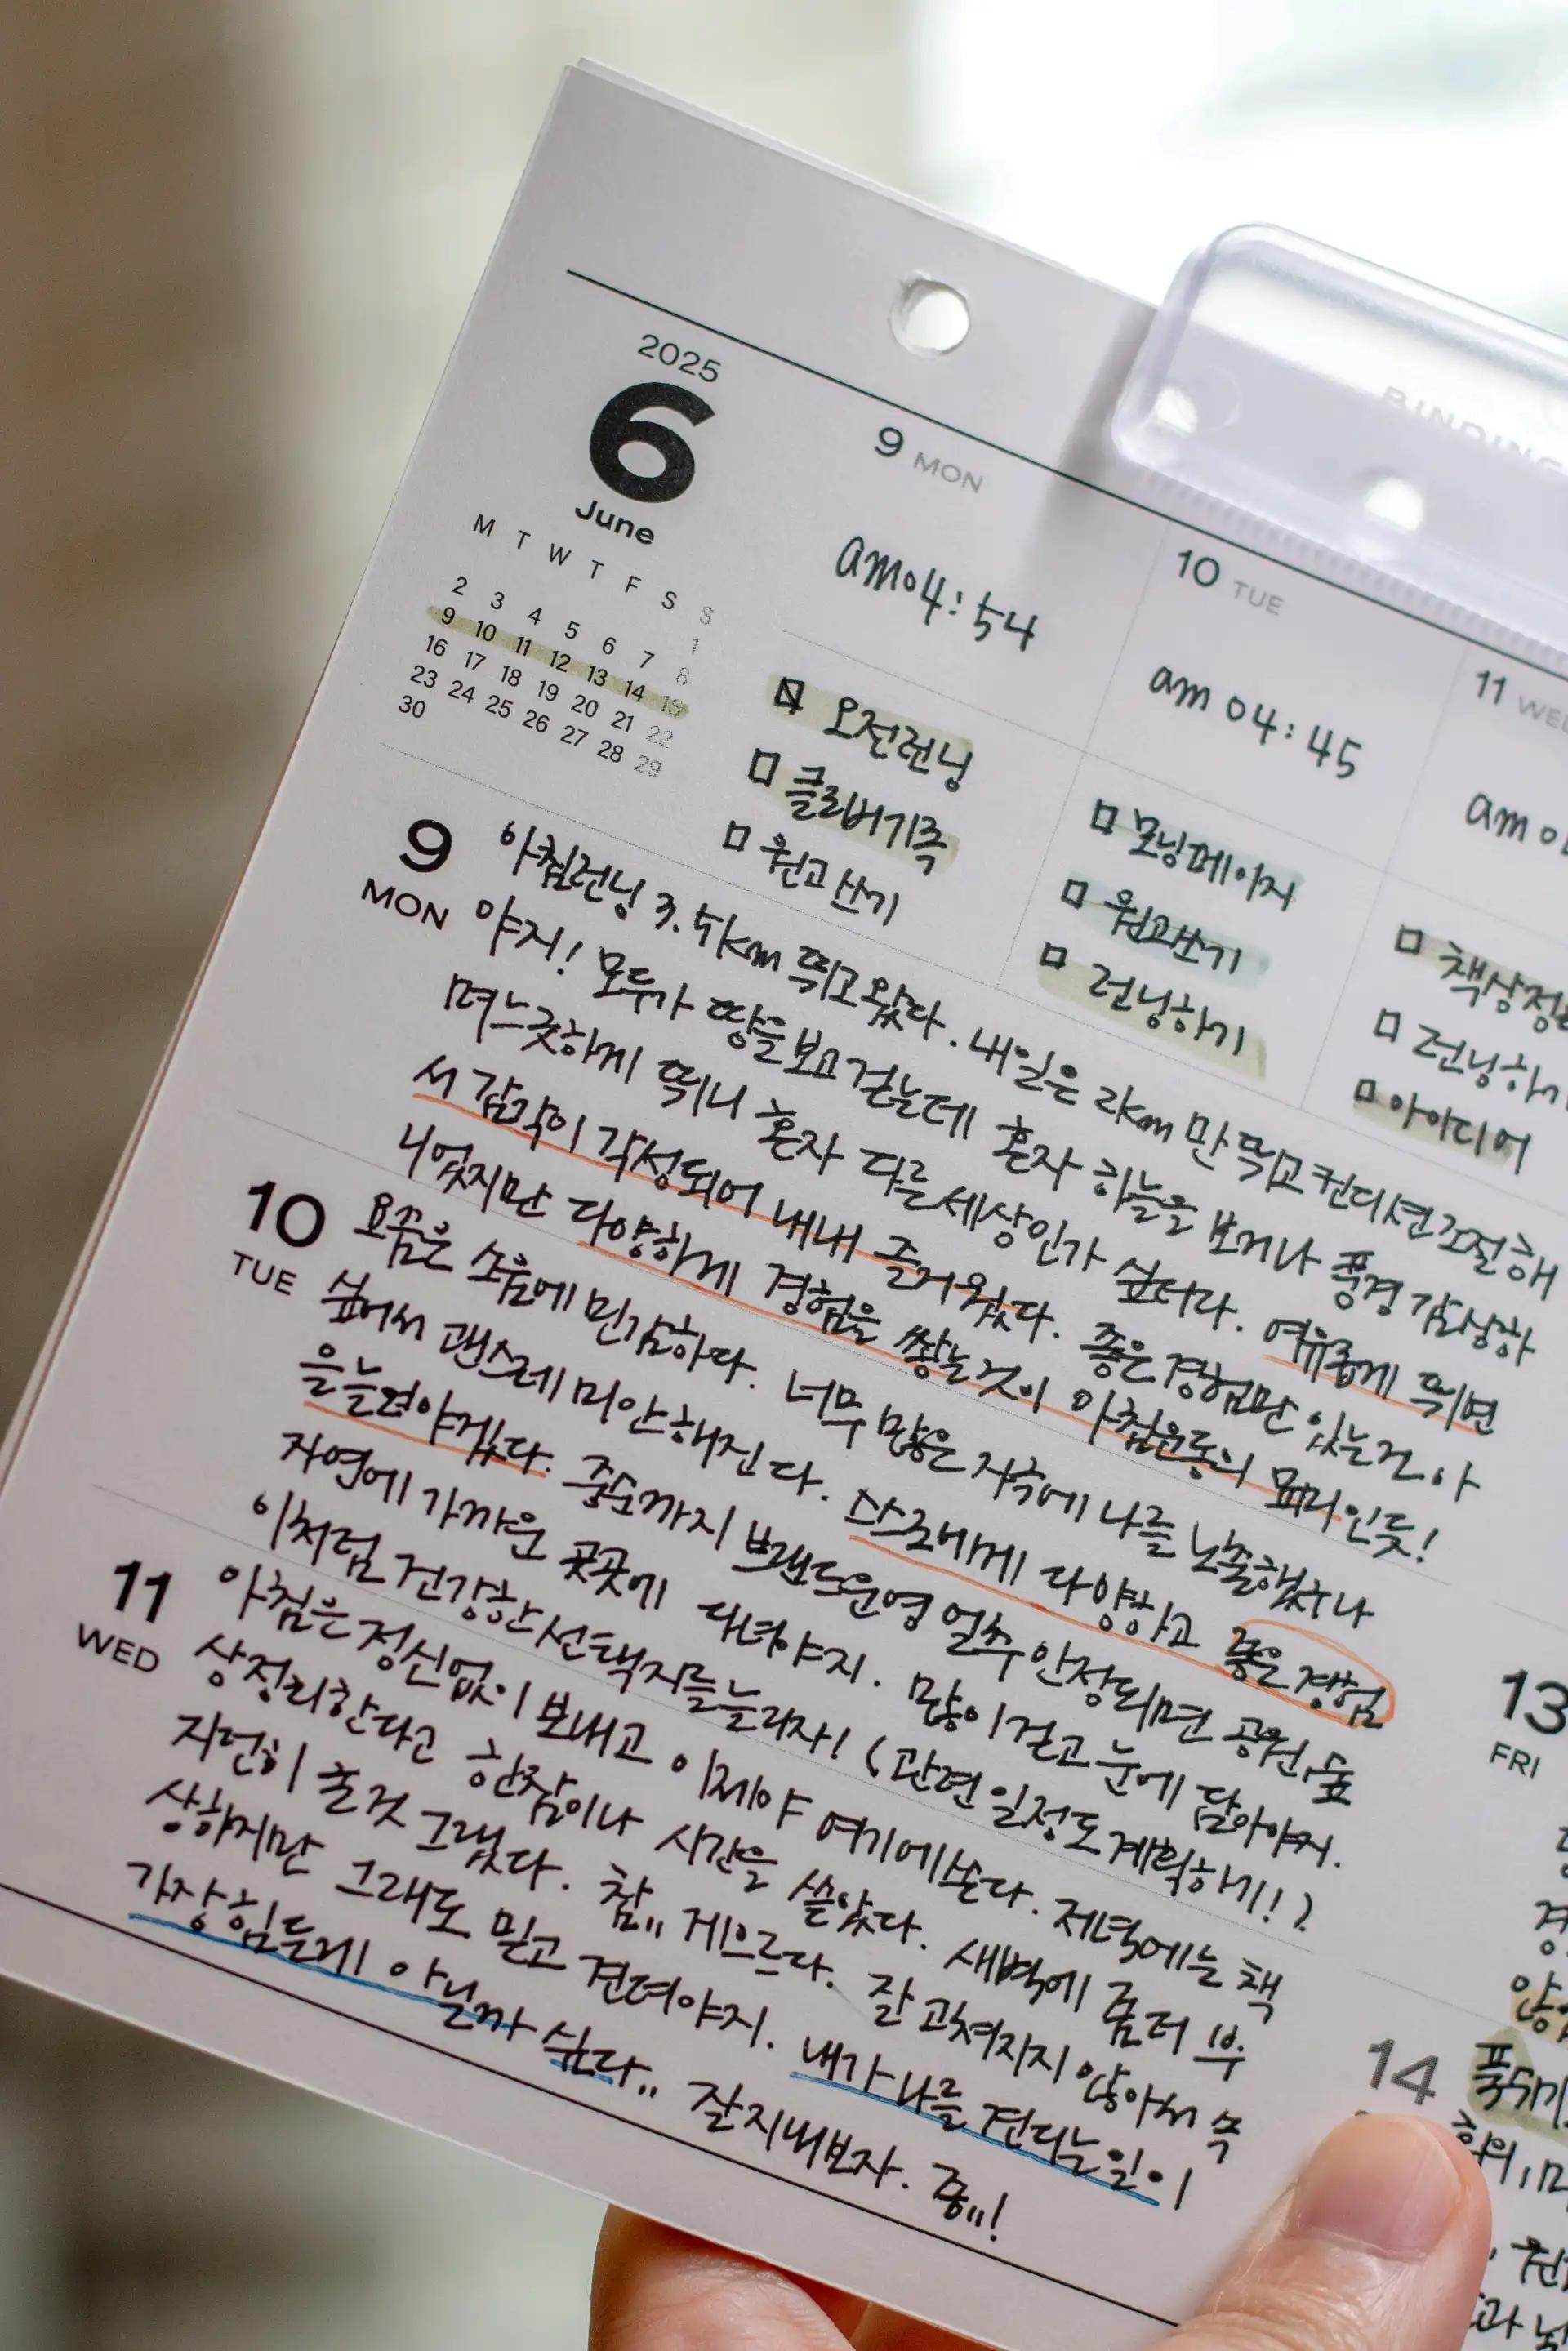 BINDING
2025
6
June
M T W T F S S
1
2 3 4 5 6 7 8
9 10 11 12 13 14 15
16 17 18 19 20 21 22
23 24 25 26 27 28 29
30
9 MON
am 04:54
오전런닝
클로버기록
원고쓰기
10 TUE
am 04:45
모닝페이지
원고쓰기
런닝하기
11 WED
am
책상정
런닝하기
아이디어
9 MON
아침런닝 3.5km 뛰고왔다. 내일은 2km 만 뛰고 컨디션조절해
야지! 모두가 땅을보고걷는데 혼자 하늘을 보거나 풍경감상하
며느긋하게 뛰니 혼자 다른세상인가 싶더라. 여유롭게 뛰면
서 감각이 각성되어 내내 즐거웠다. 좋은경험만 있는건 아
니었지만 다양하게 경험을 쌓는것이 아침운동의 묘미인듯!
10 TUE
요즘은 소음에 민감하다. 너무 많은 자극에 나를 노출했나
싶어서 괜스레 미안해진다. 스스로에게 다양하고 좋은경험
을늘려야겠다. 중순까지 브랜드운영 얼추안정되면 공원,숲
자연에 가까운 곳곳에 다녀야지. 많이걷고 눈에 담아야지.
이처럼 건강한선택지를늘리자! (관련일정도계획하기!)
11 WED
아침은정신없이 보내고 이제야 여기에쓴다. 저녁에는 책
상정리한다고 한참이나 시간을 쏟았다. 새벽에 좀더 부
지런히 할것 그랬다. 참.. 게으르다. 잘고쳐지지않아서 속
상하지만 그래도 믿고 견뎌야지. 내가 나를 견디는일이
가장힘든게 아닐까 싶다.. 잘지내보자. 좀..!
13
FRI
14